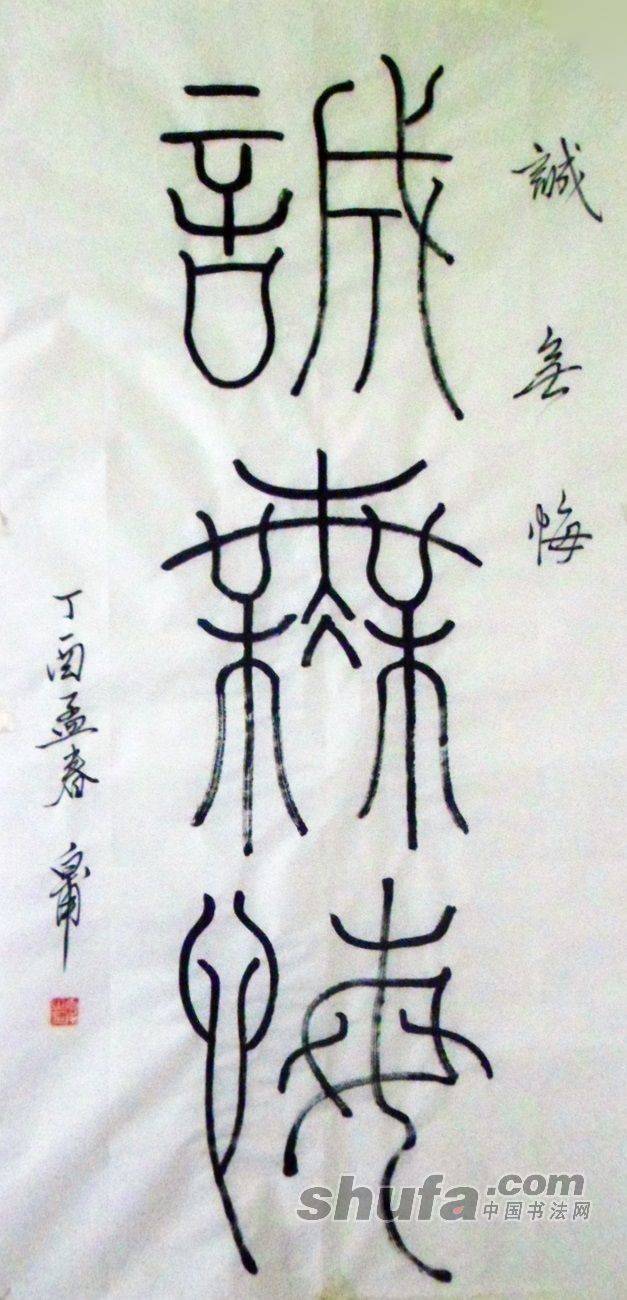 誠無悔
誠無悔
丁酉孟春
shufa.com
中国书法网